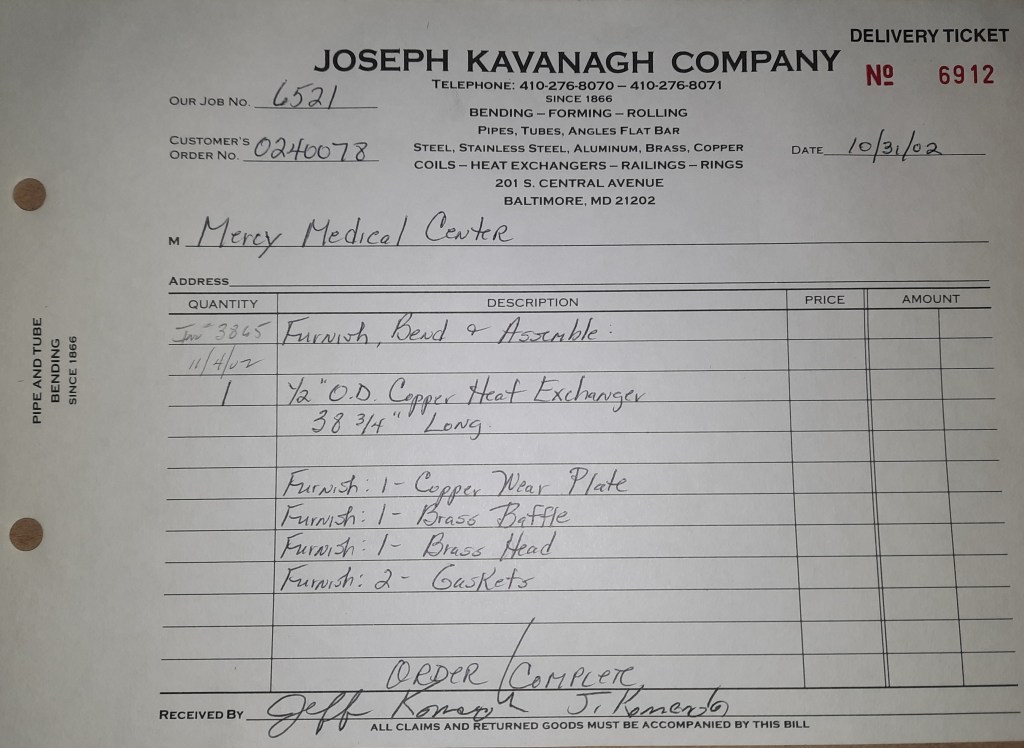 DELIVERY TICKET
JOSEPH KAVANAGH COMPANY
Nº 6912
TELEPHONE: 410-276-8070 – 410-276-8071
SINCE 1866
OUR JOB NO. 6521
BENDING – FORMING – ROLLING
PIPES, TUBES, ANGLES FLAT BAR
CUSTOMER'S ORDER NO. 0240078
STEEL, STAINLESS STEEL, ALUMINUM, BRASS, COPPER
DATE 10/31/02
COILS – HEAT EXCHANGERS – RAILINGS – RINGS
201 S. CENTRAL AVENUE
BALTIMORE, MD 21202
M Mercy Medical Center
ADDRESS
QUANTITY DESCRIPTION PRICE AMOUNT
Inv# 3865 Furnish, Bend & Assemble:
11/4/02
1 1/2" O.D. Copper Heat Exchanger
38 3/4" Long
Furnish: 1 - Copper Wear Plate
Furnish: 1 - Brass Baffle
Furnish: 1 - Brass Head
Furnish: 2 - Gaskets
ORDER / COMPLETE
RECEIVED BY Jeff J.
ALL CLAIMS AND RETURNED GOODS MUST BE ACCOMPANIED BY THIS BILL
PIPE AND TUBE
BENDING
SINCE 1866